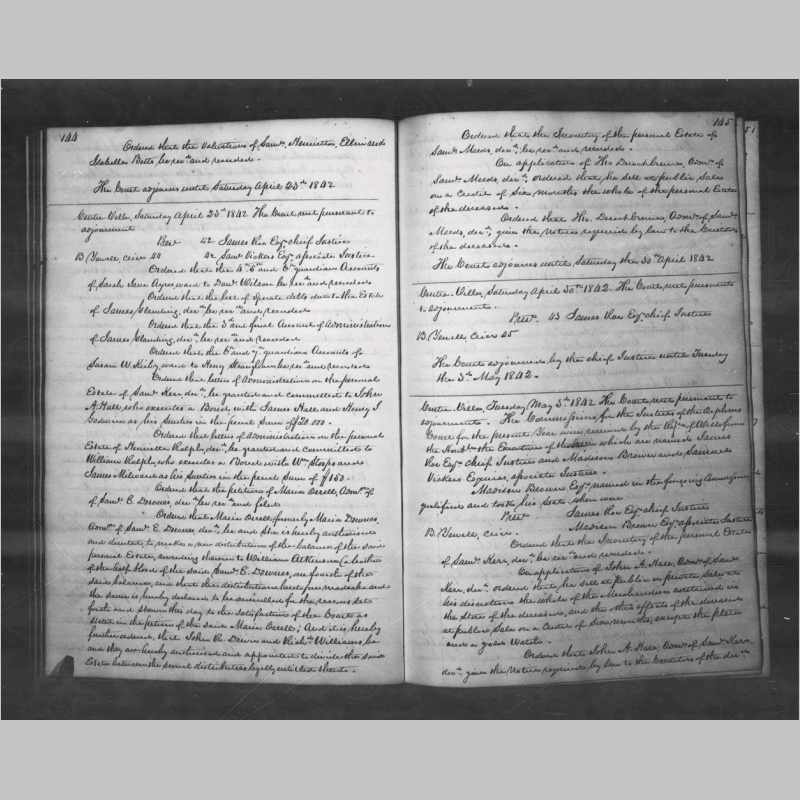 144
Ordered that the valuations of Saml, Henrietta, Ellen and
Isabella Betts, be recd and recorded.
The Court adjourns until Saturday April 23d 1842
Centre Ville, Saturday April 23d 1842. The Court met pursuant to
adjournment
Prest 42 James Roe Esqr chief Justice
B Yewell, Crier 44 42 Saml Vickers Esqr associate Justice
Ordered that the 5th & 6th guardian Accounts
of Sarah Jane Ayres, ward to Danl Wilson be recd and recorded
Ordered that the list of Sperate debts due to the Estate
of James Clanding, decd be recd and recorded
Ordered that the 3d and final Account of administration
of James Clanding, decd be recd and recorded
Ordered that the 6th and 7th guardian Accounts of
Susan W. Kirby, ward to Henry be recd and recorded
Ordered that letters of administration on the personal
Estate of Saml Kerr, decd be granted and committed to John
A. Hall, who executes a Bond, with James Hall and Henry S.
Goodwin as his Sureties in the penal Sum of $20.000.
Ordered that letters of administration on the personal
Estate of Henrietta Ralph, decd be granted and committed to
William Ralph, who executes a Bond with Wm Stoops and
James Milward as his Sureties in the penal Sum of $150.
Ordered that the petition of Maria Orrell, Admx of
of Saml E. Downes, decd be recd and filed
Ordered that Maria Orrell, formerly Maria Downes,
Admx of Saml E. Downes decd be and she is hereby authorised
and directed, to make a new distribution of the balance of the said
personal Estate, awarding thereon to William Atkinson (a brother
of the half blood of the said Saml E. Downes) one fourth of the
said balance, and that the distribution heretofore made be and
the same is hereby declared to be annulled for the reasons set
forth and shown this day to the Satisfaction of the Court as
stated in the petition of the said Maria Orrell; And it is hereby
further ordered, that John R. Downs and Richd Williams, be
and they are hereby authorised and appointed to divide the said
Estate between the several distributees legally entitled thereto.
145
Ordered that the Inventory of the personal Estate of
Saml Meeds, decd be recd and recorded.
On application of Thos Admr of
Saml Meeds, decd; ordered that he sell at public Sale
on a Credit of Six months the whole of the personal Estate
of the deceased.
Ordered that Thos Admr of Saml
Meeds, decd, given the Notice required by law to the Creditors
of the deceased.
The Court adjourns until Saturday the 30th April 1842
Centre Ville, Saturday April 30th 1842. The Court met pursuant
to adjournment.
Prest 43 James Roe Esqr chief Justice
B. Yewell Crier 45
The Court adjourned by the chief Justice until Tuesday
the 3d May 1842.
Centre Ville, Tuesday May 3d 1842. The Court met pursuant to
adjournment. The Commissions for the Justices of the Orphans
Court for the present Year were received by the of Wills from
the Honble the Executive of the State in which are named James
Roe Esqr Chief Justice and Madison Brown and Samuel
Vickers Esquires, associate Justices.
Madison Brown Esqr named in the foregoing Commission
qualified and took his seat thereon
Prest James Roe Esqr chief Justice
Madison Brown Esqr associate Justice
B. Yewell, Crier.
Ordered that the Inventory of the personal Estate
of Saml Kerr, decd be recd and recorded.
On application of John A. Hall, Admr of Saml
Kerr, decd ordered that he sell at public or private Sale at
his discretion the whole of the Merchandise contained in
the Store of the deceased, and the other effects of the deceased
at public Sale on a Credit of months, except the plate
and a gold Watch.
Ordered that John A. Hall, Admr of Saml Kerr,
decd given the Notice required by law to the Creditors of the decd